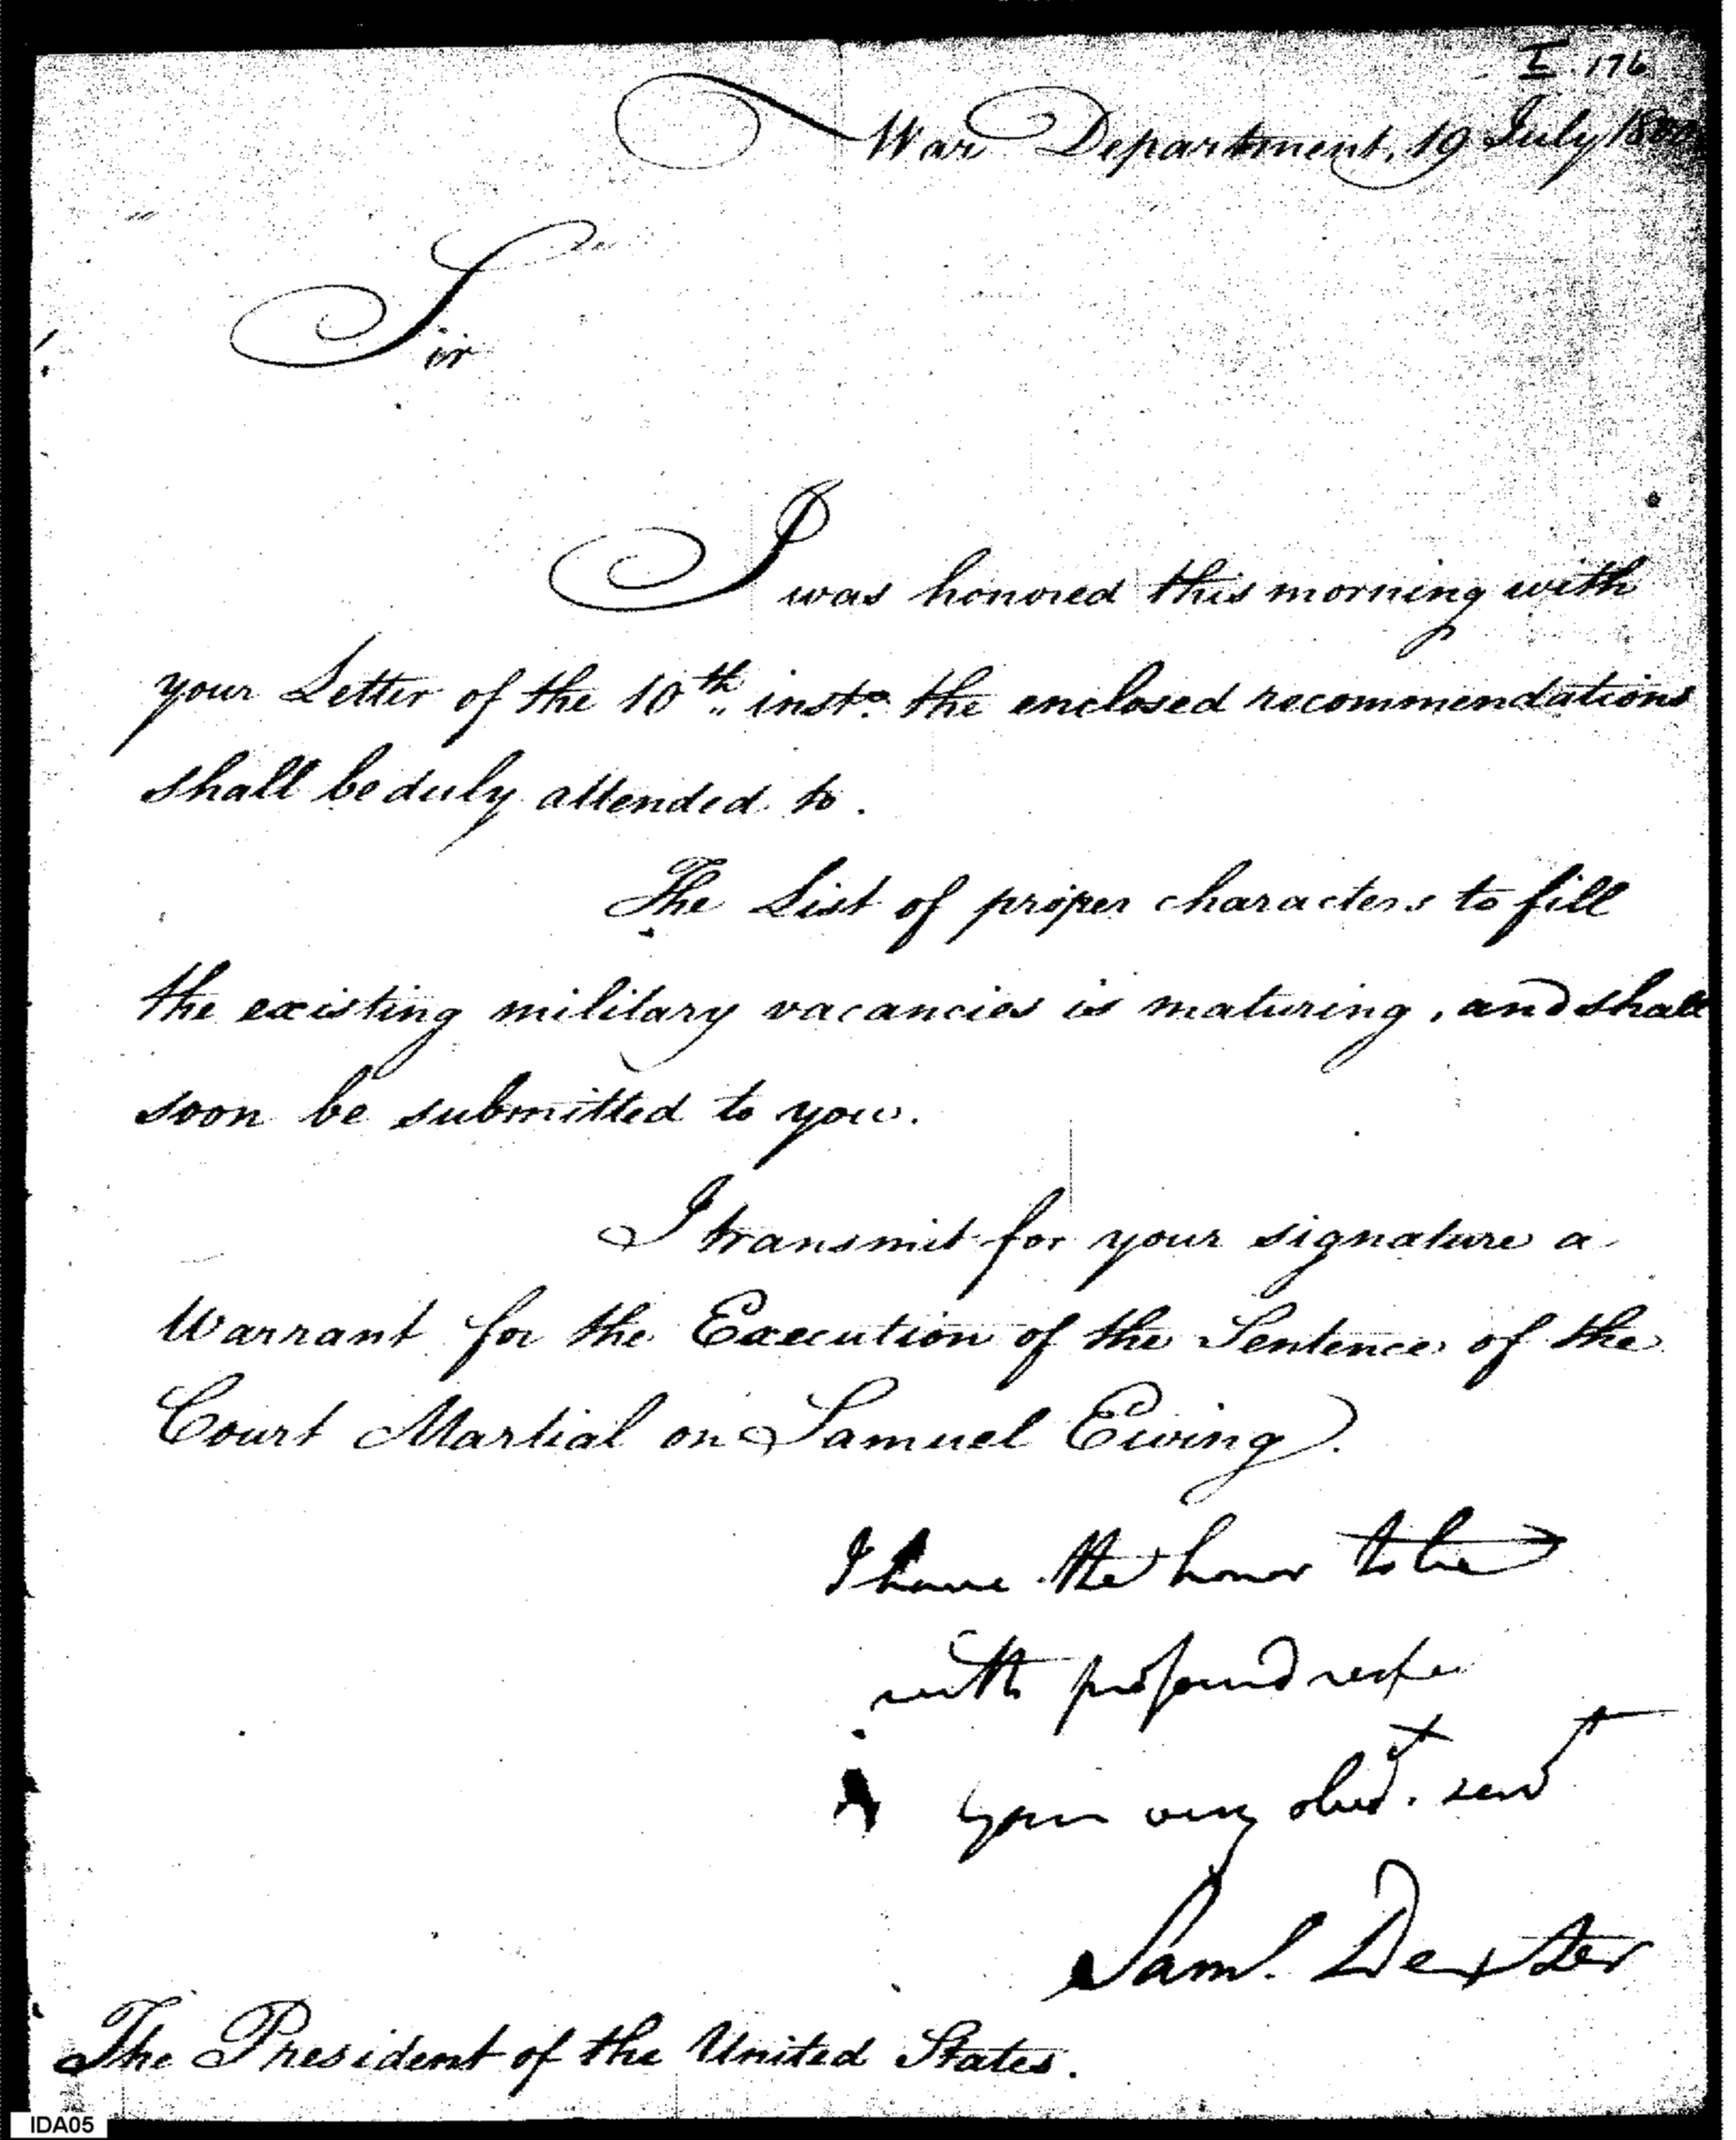 I 176
War Department, 19 July 1800
Sir
I was honored this morning with
your Letter of the 10th inst. the enclosed recommendations
shall be duly attended to.
The List of proper characters to fill
the existing military vacancies is maturing, and shall
soon be submitted to you.
I transmit for your signature a
Warrant for the Execution of the Sentence of the
Court Martial on Samuel Ewing.
I have the honor to be
with profound respe
your very obedt. servt
Saml. Dexter
The President of the United States.
IDA05